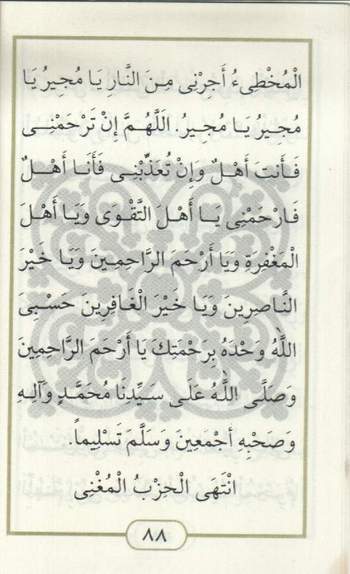 الْمُخْطِىءُ أَجِرْنِى مِنَ النَّارِ يَا مُجِيرُ يَا
مُجِيرُ يَا مُجِيرُ. اَللَّهُمَّ إِنْ تَرْحَمْنِى
فَأَنتَ أَهْلٌ وَإِنْ تُعَذِّبْنِى فَأَنَا أَهْلٌ
فَارْحَمْنِى يَا أَهْلَ التَّقْوَى وَيَا أَهْلَ
الْمَغْفِرَةِ وَيَا أَرْحَمَ الرَّاحِمِينَ وَيَا خَيْرَ
النَّاصِرِينَ وَيَا خَيْرَ الْغَافِرِينَ حَسْبِىَ
اللَّهُ وَحْدَهُ بِرَحْمَتِكَ يَا أَرْحَمَ الرَّاحِمِينَ
وَصَلَّى اللَّهُ عَلَى سَيِّدِنَا مُحَمَّدٍ وَآلِهِ
وَصَحْبِهِ أَجْمَعِينَ وَسَلَّمَ تَسْلِيماً.
انْتَهَى الْحِزْبُ الْمُغْنِى
٨٨